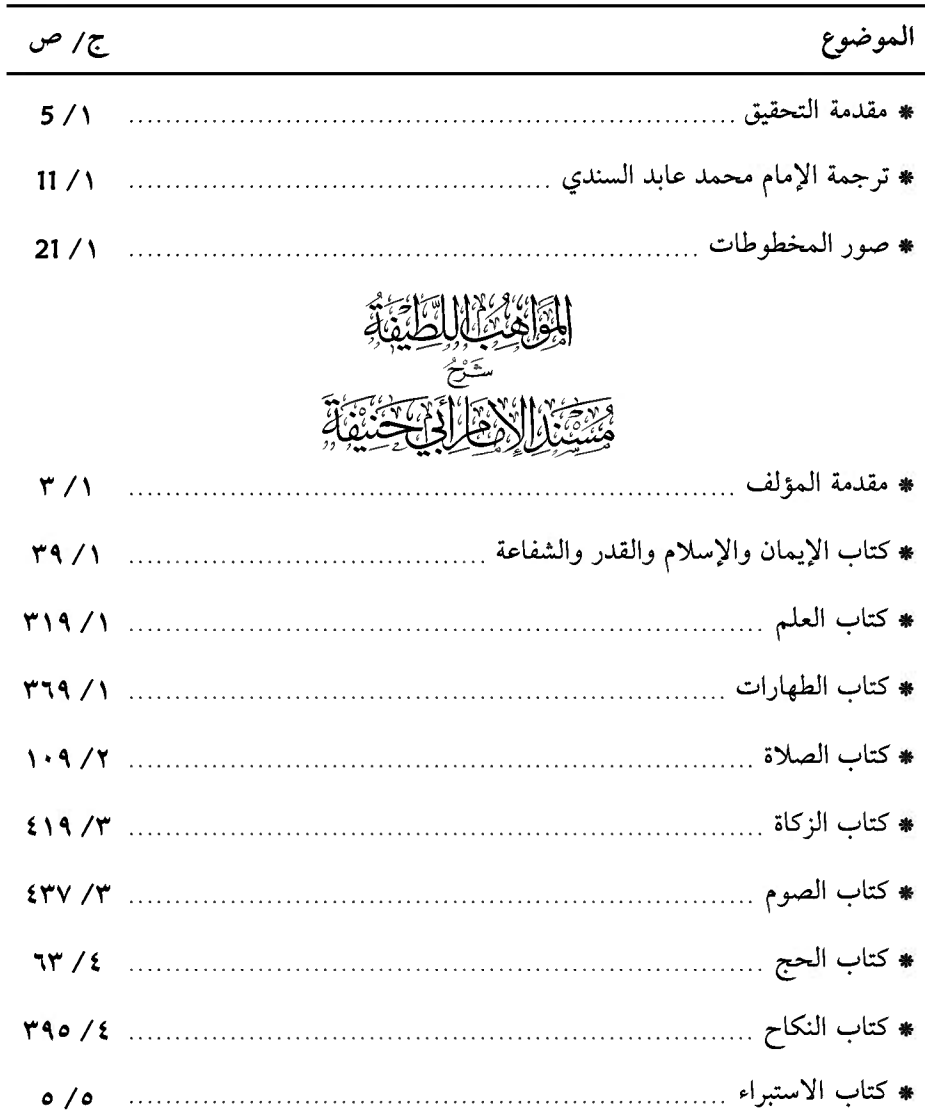 الموضوع ج/ ص
* مقدمة التحقيق ................................ ١/ 5
* ترجمة الإمام محمد عابد السندي ................................ ١/ 11
* صور المخطوطات ................................ ١/ 21
المَوَاهِبُ اللَّطِيْفَةُ
شَرْحُ
مُسْنَدِ الإِمَامِ أَبِي حَنِيْفَةَ
* مقدمة المؤلف ................................ ١/ ٣
* كتاب الإيمان والإسلام والقدر والشفاعة ................................ ١/ ٣٩
* كتاب العلم ................................ ١/ ٣١٩
* كتاب الطهارات ................................ ١/ ٣٦٩
* كتاب الصلاة ................................ ٢/ ١٠٩
* كتاب الزكاة ................................ ٣/ ٤١٩
* كتاب الصوم ................................ ٣/ ٤٣٧
* كتاب الحج ................................ ٤/ ٦٣
* كتاب النكاح ................................ ٤/ ٣٩٥
* كتاب الاستبراء ................................ ٥/ ٥